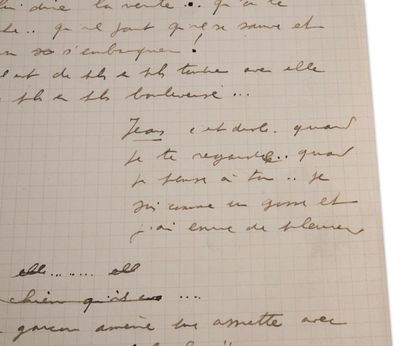 dire la vérité .. qu'il le
.. qu'il faut qu'il se sauve et
s'embarquer.
est de pls en pls tendre avec elle
pls en pls bouleversé ...
Jean c'est drole. quand
je te regarde .. quand
je pense à toi .. je
suis comme un gosse et
j'ai envie de pleurer
elle ........ elle
chien qu'il ....
garçon amène une assiette avec